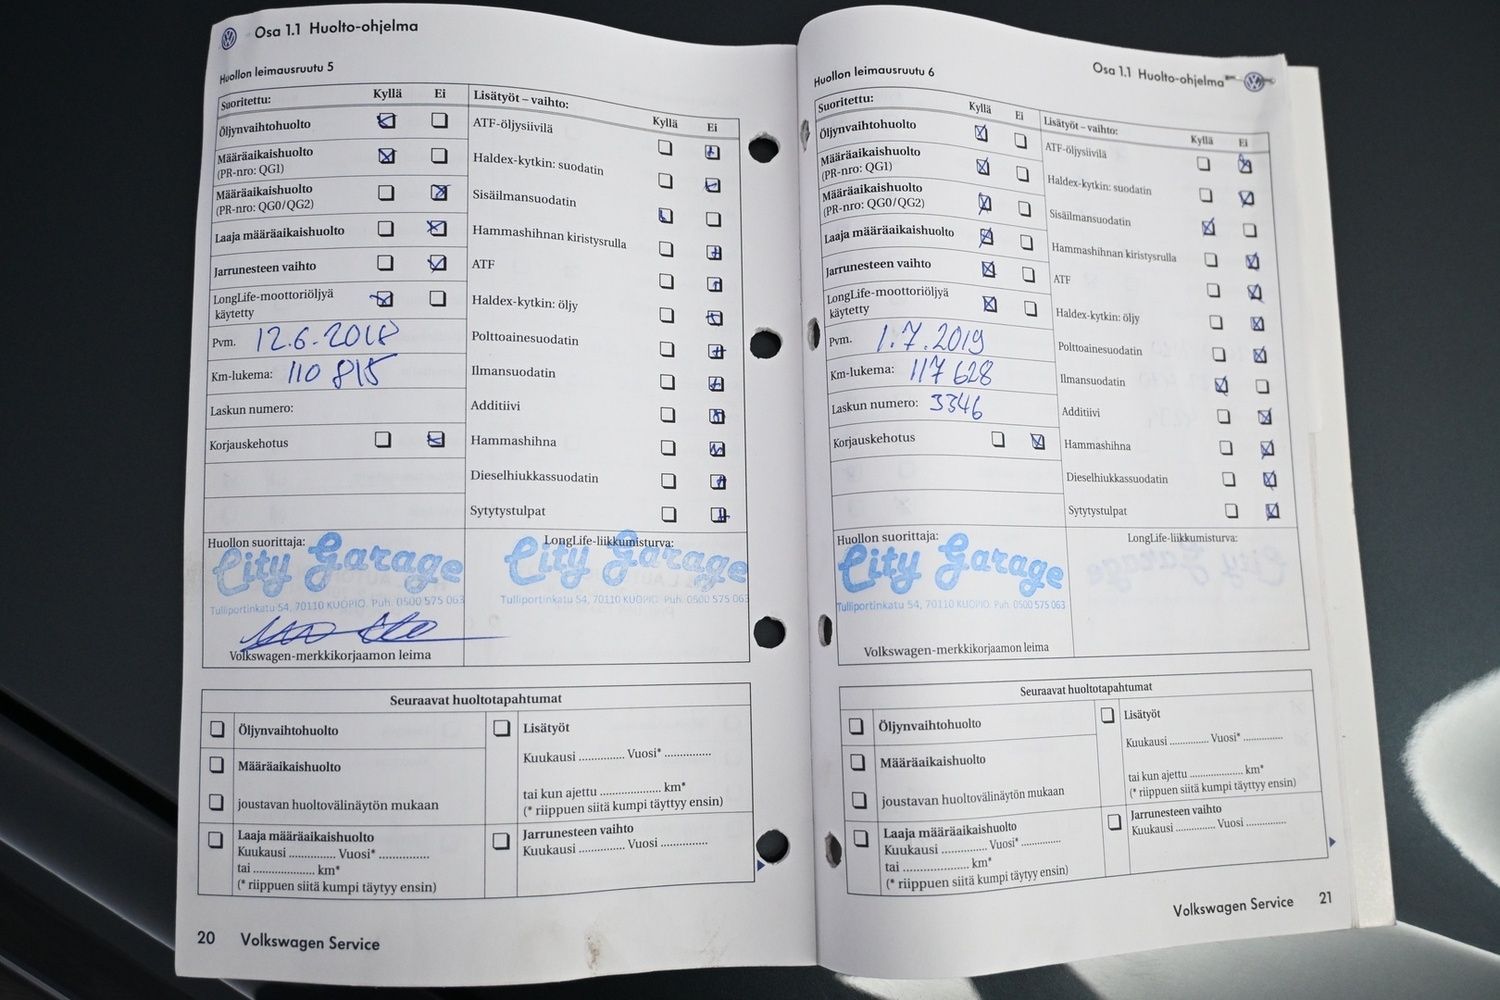 Osa 1.1 Huolto-ohjelma
Huollon leimausruutu 5
Suoritettu: Kyllä Ei
Öljynvaihtohuolto
Määräaikaishuolto
(PR-nro: QG1)
Määräaikaishuolto
(PR-nro: QG0/QG2)
Laaja määräaikaishuolto
Jarrunesteen vaihto
LongLife-moottoriöljyä
käytetty
Pvm. 12.6.2018
Km-lukema: 110 815
Laskun numero:
Korjauskehotus
Lisätyöt – vaihto: Kyllä Ei
ATF-öljysiivilä
Haldex-kytkin: suodatin
Sisäilmansuodatin
Hammashihnan kiristysrulla
ATF
Haldex-kytkin: öljy
Polttoainesuodatin
Ilmansuodatin
Additiivi
Hammashihna
Dieselhiukkassuodatin
Sytytystulpat
Huollon suorittaja:
City Garage
Tulliportinkatu 54, 70110 KUOPIO. Puh. 0500 575 063
Volkswagen-merkkikorjaamon leima
LongLife-liikkumisturva:
City Garage
Tulliportinkatu 54, 70110 KUOPIO. Puh. 0500 575 063
Seuraavat huoltotapahtumat
Öljynvaihtohuolto
Määräaikaishuolto
joustavan huoltovälinäytön mukaan
Laaja määräaikaishuolto
Kuukausi .............. Vuosi* ..............
tai .................... km*
(* riippuen siitä kumpi täytyy ensin)
Lisätyöt
Kuukausi .............. Vuosi* ..............
tai kun ajettu .................... km*
(* riippuen siitä kumpi täyttyy ensin)
Jarrunesteen vaihto
Kuukausi .............. Vuosi ..............
20 Volkswagen Service
Osa 1.1 Huolto-ohjelma
Huollon leimausruutu 6
Suoritettu: Kyllä Ei
Öljynvaihtohuolto
Määräaikaishuolto
(PR-nro: QG1)
Määräaikaishuolto
(PR-nro: QG0/QG2)
Laaja määräaikaishuolto
Jarrunesteen vaihto
LongLife-moottoriöljyä
käytetty
Pvm. 1.7.2019
Km-lukema: 117 628
Laskun numero: 3346
Korjauskehotus
Lisätyöt – vaihto: Kyllä Ei
ATF-öljysiivilä
Haldex-kytkin: suodatin
Sisäilmansuodatin
Hammashihnan kiristysrulla
ATF
Haldex-kytkin: öljy
Polttoainesuodatin
Ilmansuodatin
Additiivi
Hammashihna
Dieselhiukkassuodatin
Sytytystulpat
Huollon suorittaja:
City Garage
Tulliportinkatu 54, 70110 KUOPIO. Puh. 0500 575 063
Volkswagen-merkkikorjaamon leima
LongLife-liikkumisturva:
Seuraavat huoltotapahtumat
Öljynvaihtohuolto
Määräaikaishuolto
joustavan huoltovälinäytön mukaan
Laaja määräaikaishuolto
Kuukausi .............. Vuosi* ..............
tai .................... km*
(* riippuen siitä kumpi täytyy ensin)
Lisätyöt
Kuukausi .............. Vuosi* ..............
tai kun ajettu .................... km*
(* riippuen siitä kumpi täyttyy ensin)
Jarrunesteen vaihto
Kuukausi .............. Vuosi ..............
Volkswagen Service 21